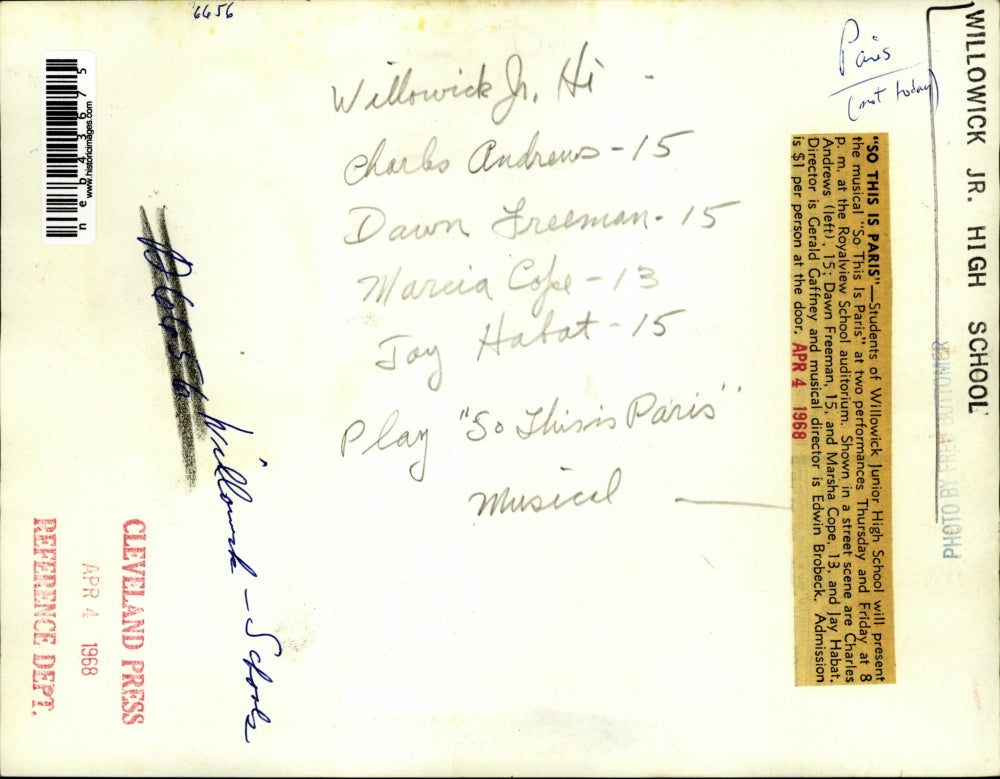 6656
neb44367 5
www.historicimages.com
Willowick Jr. Hi -
Charles Andrews - 15
Dawn Freeman - 15
Marcia Cope - 13
Jay Habat - 15
Play "So This is Paris"
Musical
Paris
(not today)
WILLOWICK JR. HIGH SCHOOL
PHOTO BY FRED BOTTOMER
"SO THIS IS PARIS"—Students of Willowick Junior High School will present
the musical "So This Is Paris" at two performances Thursday and Friday at 8
p. m. at the Royalview School auditorium. Shown in a street scene are Charles
Andrews (left), 15; Dawn Freeman, 15, and Marsha Cope, 13, and Jay Habat.
Director is Gerald Gaffney and musical director is Edwin Brobeck. Admission
is $1 per person at the door. APR 4 1968
Willowick - Schools
CLEVELAND PRESS
APR 4 1968
REFERENCE DEPT.